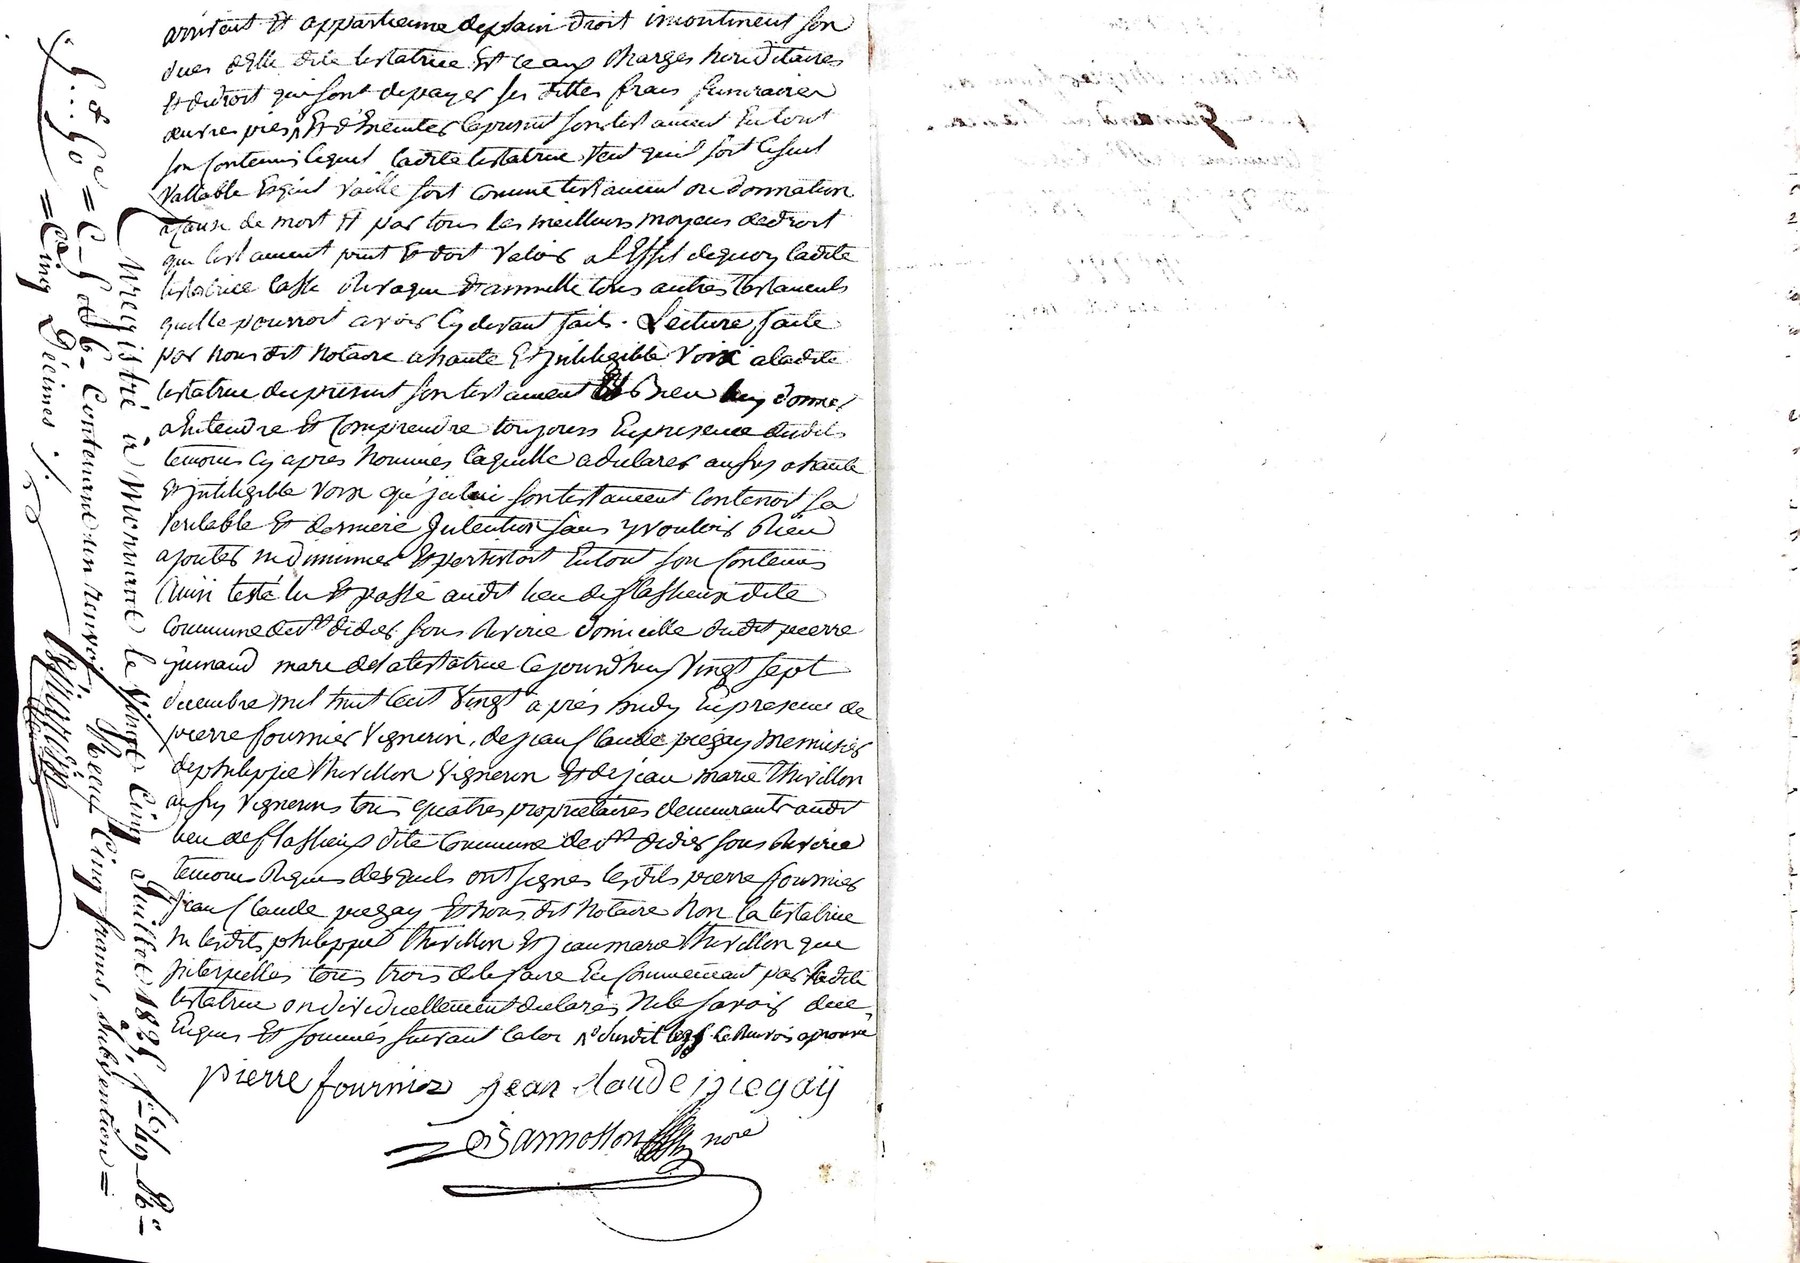 arrivent et appartienne deplain droit incontinent son
dues d'Elle dite testatrice Et ce aux Charges hereditaires
Et dudroit qui sont depayer ses dittes frais funeraires
œuvres pies, Et d'Exécuter leprésent sontestament Entout
son Contenu lequel ladite testatrice veut qui soit
vallable Et qu'il vaille soit comme testament ou donnation
acause de mort Et par tous les meilleurs moyens dedroit
que testament peut Et doit valoir a l'Effet dequoy ladite
testatrice Casse Revoque Et annulle tous autres testaments
quelle pourroit avoir Cy devant faits. Lecture faite
par nous dit Notaire ahaute Et Jntelligible voix aladite
testatrice du present sontestament Et Bien luy donner
aEntendre Et Comprendre toujours Enpresence desdits
temoins Cy apres Nommés laquelle adeclarer aussy ahaute
Et Jntelligible voix que sontestament Contenoit sa
veritable Et derniere Jntention sans y vouloir Rien
ajouter ny diminuer Et persistoit Entout son Contenus
Ainsi testé lu Et passé audit lieu deflassieux dite
Commune de st didier sous Riverie domicille dudit pierre
guinand mari delatestatrice Cejourdhuy vingt sept
decembre mil huit Cent vingt après midy Enpresence de
pierre fournier vigneron, de jean Claude piegay Menuisier
dephilippe thivillon vigneron Et de jean marie thivillon
aussy vignerons tous quatres propriétaires demeurants audit
lieu deflassieux dite Commune de st didier sous Riverie
temoins Requis desquels ont signes lesdits pierre fournier
jean Claude piegay Et nous dit Notaire Non la testatrice
ni lesdits philippe thivillon Et jean marie thivillon que
Jnterpelles tous trois dele faire En Commencent par ladite
testatrice ondividuellement declarés Nele savoir de ce
Enquis Et sommés suivant laloi sudit le Renvois aprouvé
pierre fournier jean claude piegay
nore
Enregistré à Mornant le Vingt Cinq Juillet 1825, fo 49 Ro
Contenant un renvoi, Reçu Cinq francs, subvention =
= Cinquante Décimes ./.